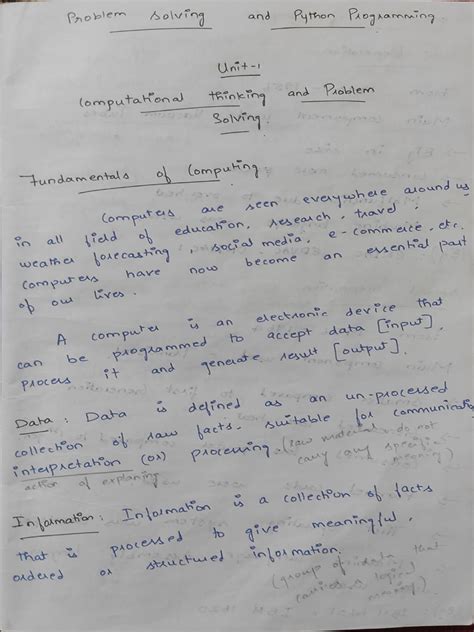 Problem Solving and Python Programming
Unit-1
Computational thinking and Problem
Solving.
Fundamentals of Computing
Computers are seen everywhere around us
in all field of education, research, travel,
weather forecasting, social media, e-commerce, etc.
Computers have now become an essential part
of our lives.
A computer is an electronic device that
can be programmed to accept data [input],
process it and generate result [output].
Data : Data is defined as an un-processed
collection of raw facts, suitable for communication
interpretation (or) processing (raw material do not
action of explaning carry any specific
meaning)
Information : Information is a collection of facts
that is processed to give meaningful,
ordered or structured information.
(group of data that
carries a logical
meaning)